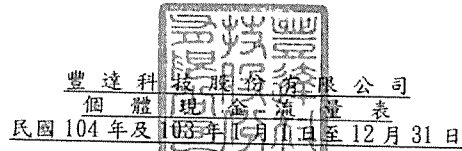 豐達科技股份有限公司
個體現金流量表
民國104年及103年1月1日至12月31日